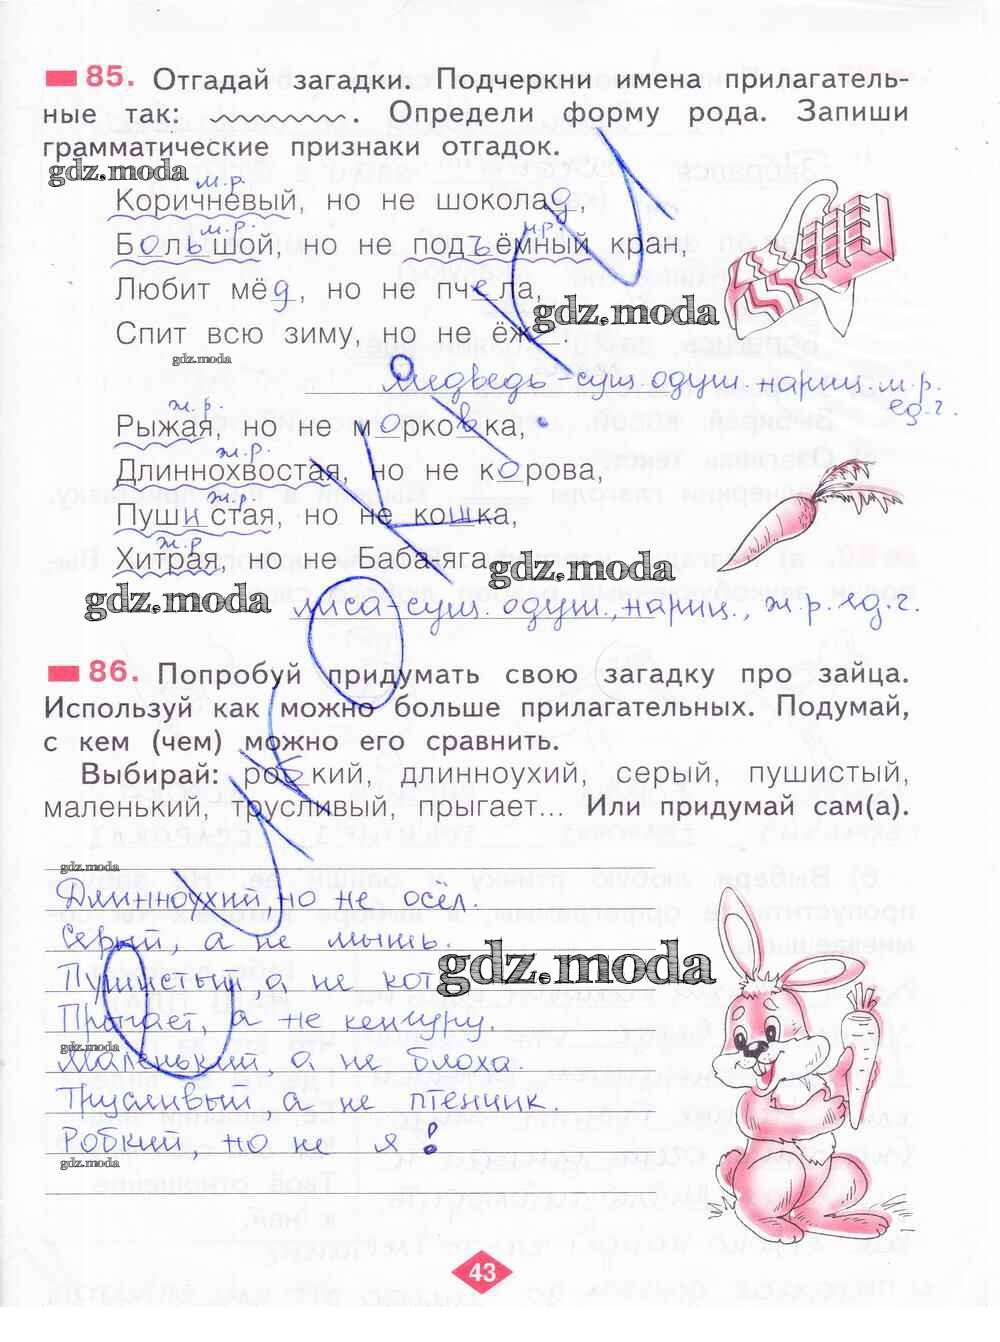 85. Отгадай загадки. Подчеркни имена прилагатель-
ные так: . Определи форму рода. Запиши
грамматические признаки отгадок.
gdz.moda
м.р.
Коричневый, но не шоколад,
м.р. м.р.
Большой, но не подъёмный кран,
Любит мёд, но не пчела,
gdz.moda
Спит всю зиму, но не ёж
gdz.moda
медведь - сущ. одуш. нариц. м.р.
ед.ч.
ж.р.
Рыжая, но не морковка,
ж.р.
Длиннохвостая, но не корова,
ж.р.
Пушистая, но не кошка,
ж.р.
Хитрая, но не Бабаяга.
gdz.moda
gdz.moda
лиса - сущ. одуш., нариц., ж.р. ед.ч.
86. Попробуй придумать свою загадку про зайца.
Используй как можно больше прилагательных. Подумай,
с кем (чем) можно его сравнить.
Выбирай: робкий, длинноухий, серый, пушистый,
маленький, трусливый, прыгает... Или придумай сам(а).
gdz.moda
Длинноухий, но не осёл.
Серый, а не мышь.
gdz.moda
Пушистый, а не кот
gdz.moda
Прыгает, а не кенгуру.
gdz.moda
Маленький, а не блоха.
Трусливый, а не птенчик
Робкий, но не я!
gdz.moda
43